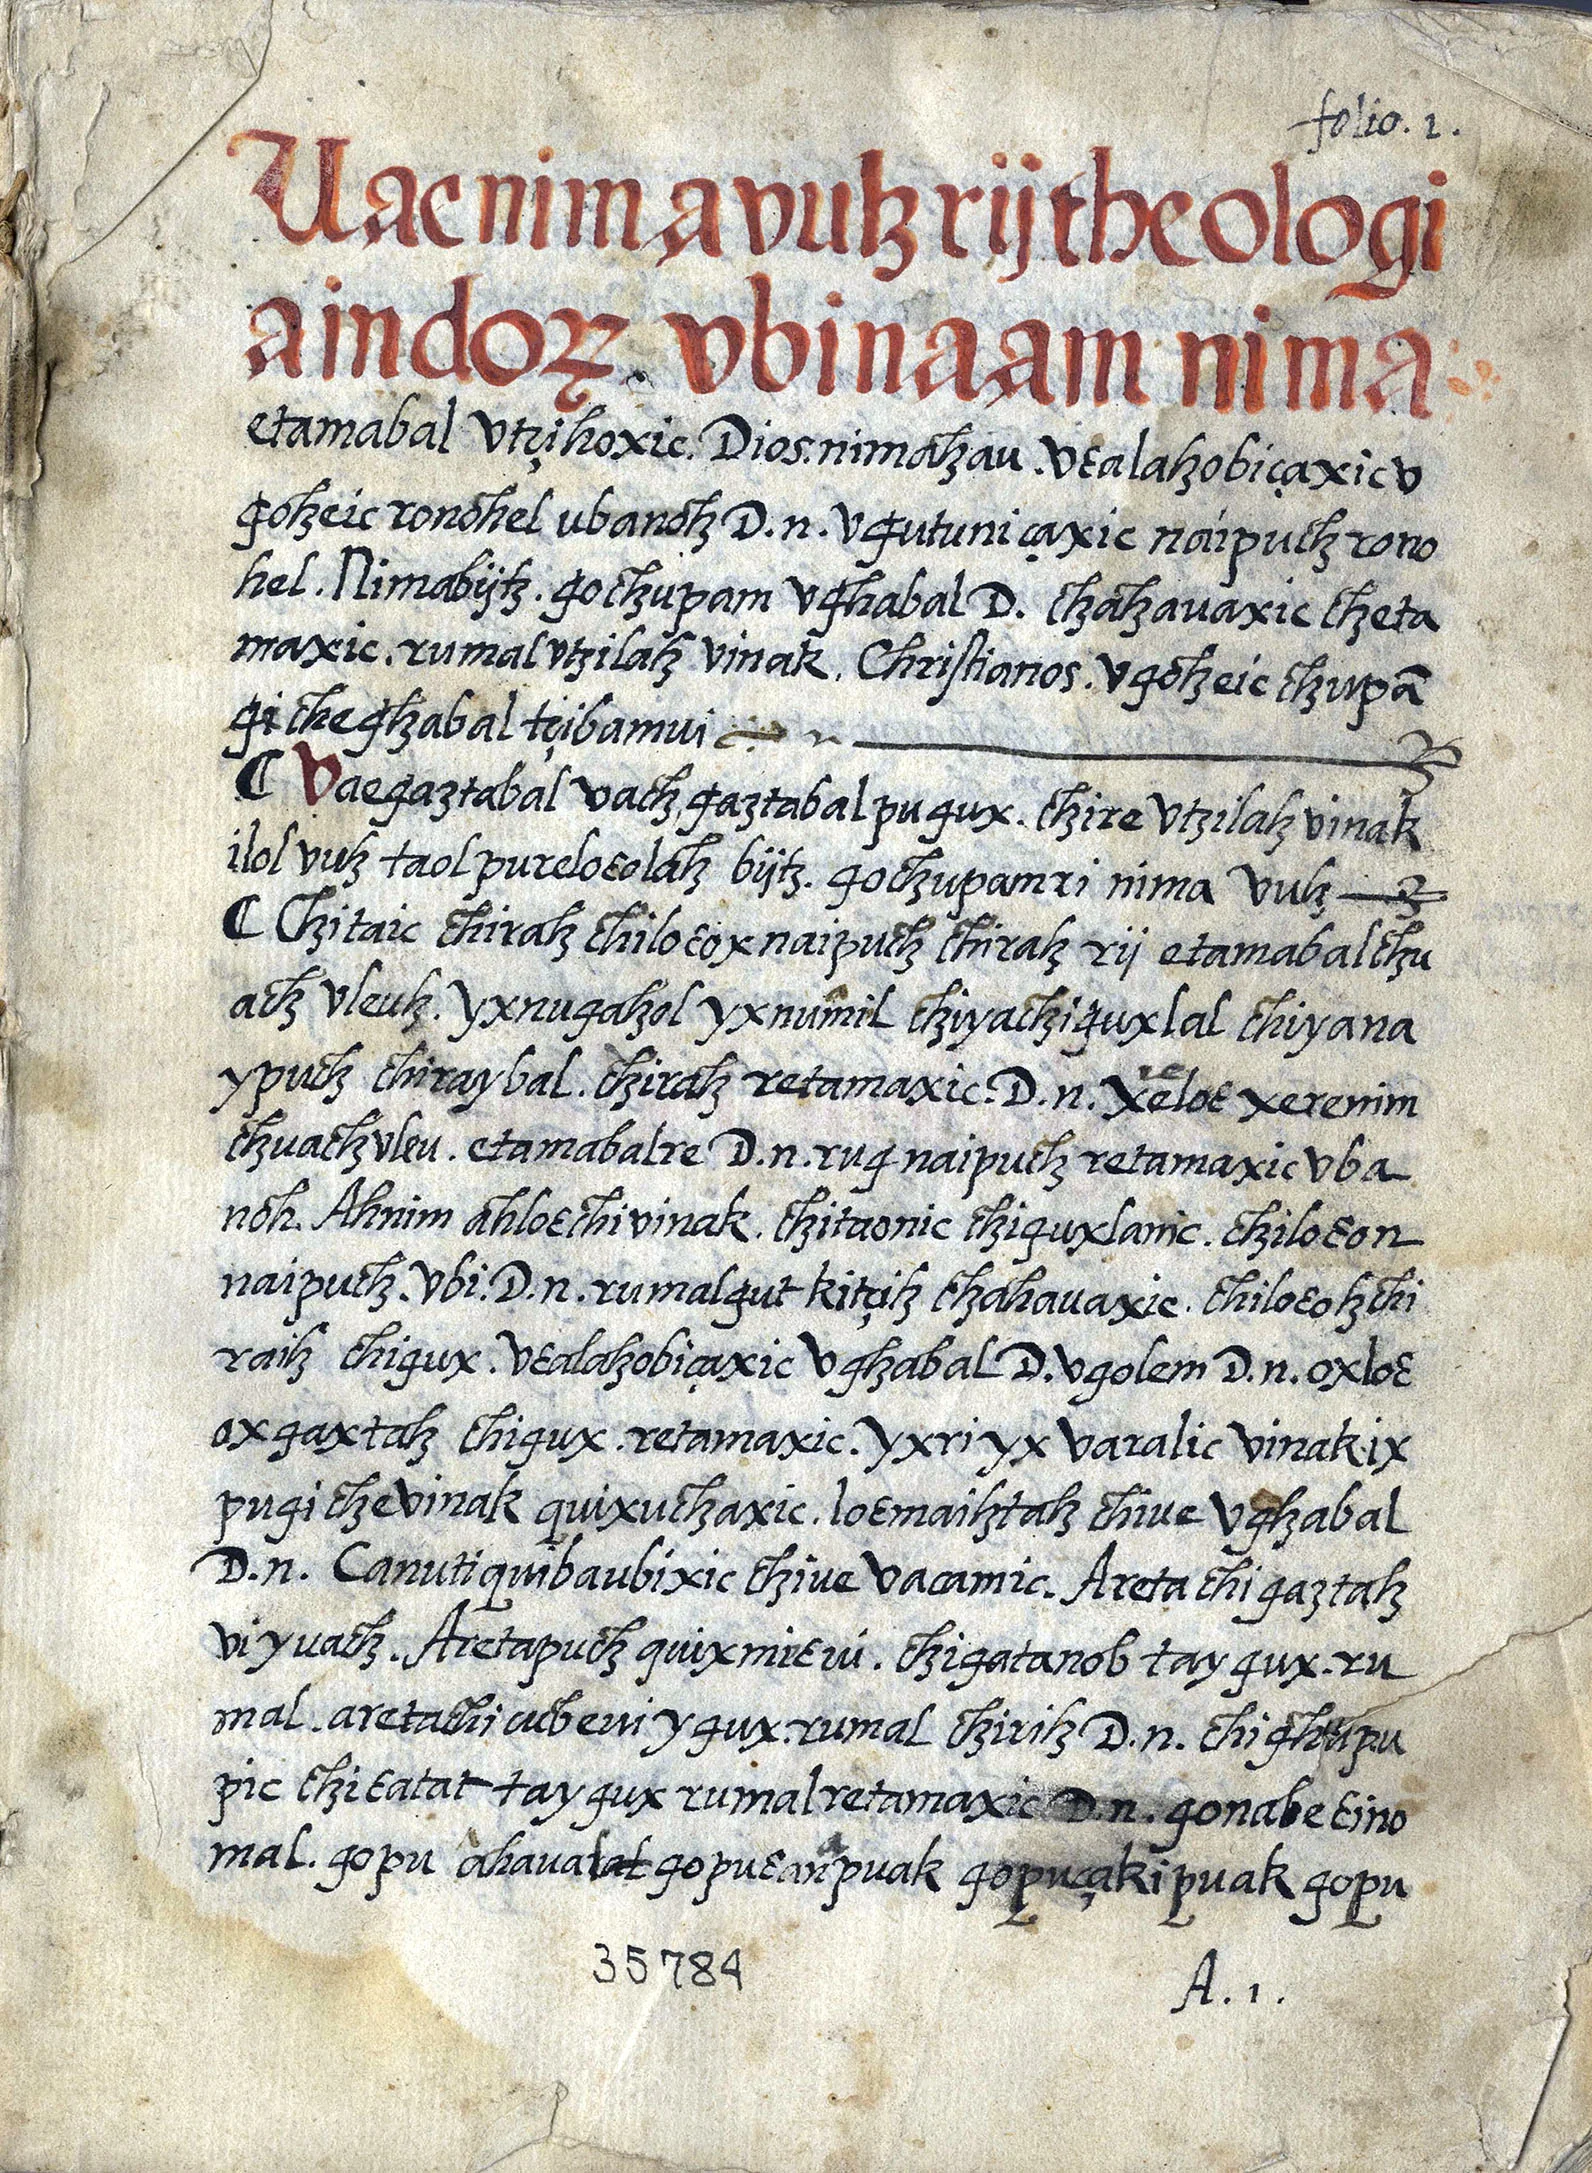 folio. 1.
Uae nima vuh rij theologi
a indoꝝ vbinaam nima
etamabal vtçihoxic. Dios. nimahau. vꜫalahobiçaxic v
ꜭoheic ronohel ubanoh D. n. vꜭutuniçaxic naipuch rono
hel. Nimabijh. ꜭochupam vꜭhabal D. chahauaxic cheta
maxic. rumal vtzilah vinak. Christianos. vꜭoheic chupã
ꜭi che ꜭhabal tçibamui
C Vae ꜭaztabal vach, ꜭaztabal pu ꜭux. chire vtzilah vinak
ilol vuh taol pu reloꜫolah bijh. ꜭochupam ri nima vuh
C Chitaic chirah chiloꜫox naipuch chirah rij etamabal chu
ach vleuh. yxnuꜭahol yxnumil chiyachiꜭuxlal chiyana
ypuch chiraybal. chirah retamaxic. D. n. xeloꜫ xerenim
chuach vleu. etamabalre D. n. ruꜭ naipuch retamaxic vba
noh. Ahnim ahloꜫ chi vinak. chitaonic chiꜭuxlanic. chiloꜫon
naipuch. vbi. D. n. rumal ꜭut kitçih chahauaxic. chiloꜫoh chi
raih chiꜭux. vꜫalahobiçaxic vꜭhabal D. vꜭolem D. n. oxloꜫ
oxꜭaxtah chiꜭux. retamaxic. yxri yx varalic vinak ix
pu ꜭi che vinak quixuchaxic. loꜫ maihtah chiue vꜭhabal
D. n. Canutiquiba ubixic chiue vacamic. Areta chi ꜭaztah
vi yuach. Aretapuch quixnirꜫ ui. chiꜭatanobtay ꜭux. ru
mal. aretachi cube ui y ꜭux. rumal chirih D. n. chi ꜭhupu
pic chi ꜫatat tay ꜭux rumal retamaxic D. n. ꜭonabe ꜫino
mal. ꜭopu ahaualat ꜭopu ꜫanapuak ꜭopu çakipuak ꜭopu
35784
A. 1.